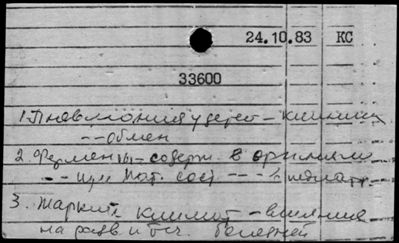 24.10.83 КС
33600
1. Пневмония у детей - клиника
-- обмен
2. Ферменты - содерж. в организме
-- при пат. сост --- в педиатр
3. Жаркий климат - влияние
на разв. и теч. болезней